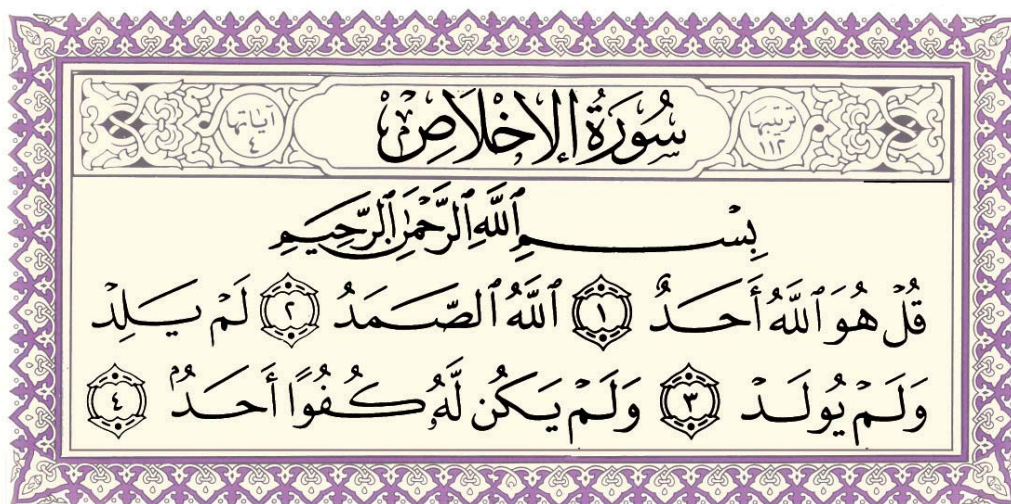 ترتيبها
١١٢
سُورَةُ الإِخْلَاصِ
آياتها
٤
بِسْمِ ٱللَّهِ ٱلرَّحْمَٰنِ ٱلرَّحِيمِ
قُلْ هُوَ ٱللَّهُ أَحَدٌ ١ ٱللَّهُ ٱلصَّمَدُ ٢ لَمْ يَلِدْ
وَلَمْ يُولَدْ ٣ وَلَمْ يَكُن لَّهُۥ كُفُوًا أَحَدٌۢ ٤